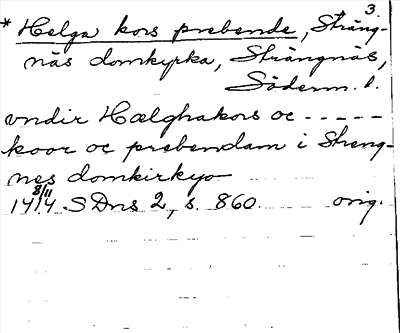 3.
* Helga kors prebende, Sträng-
näs domkyrka, Strängnäs,
Söderm. l.
vndir Hælghakors oc - - - - -
koor oc prebendam i Streng-
nes domkirkyo
8/11
1414. SDns 2, s. 860. orig.